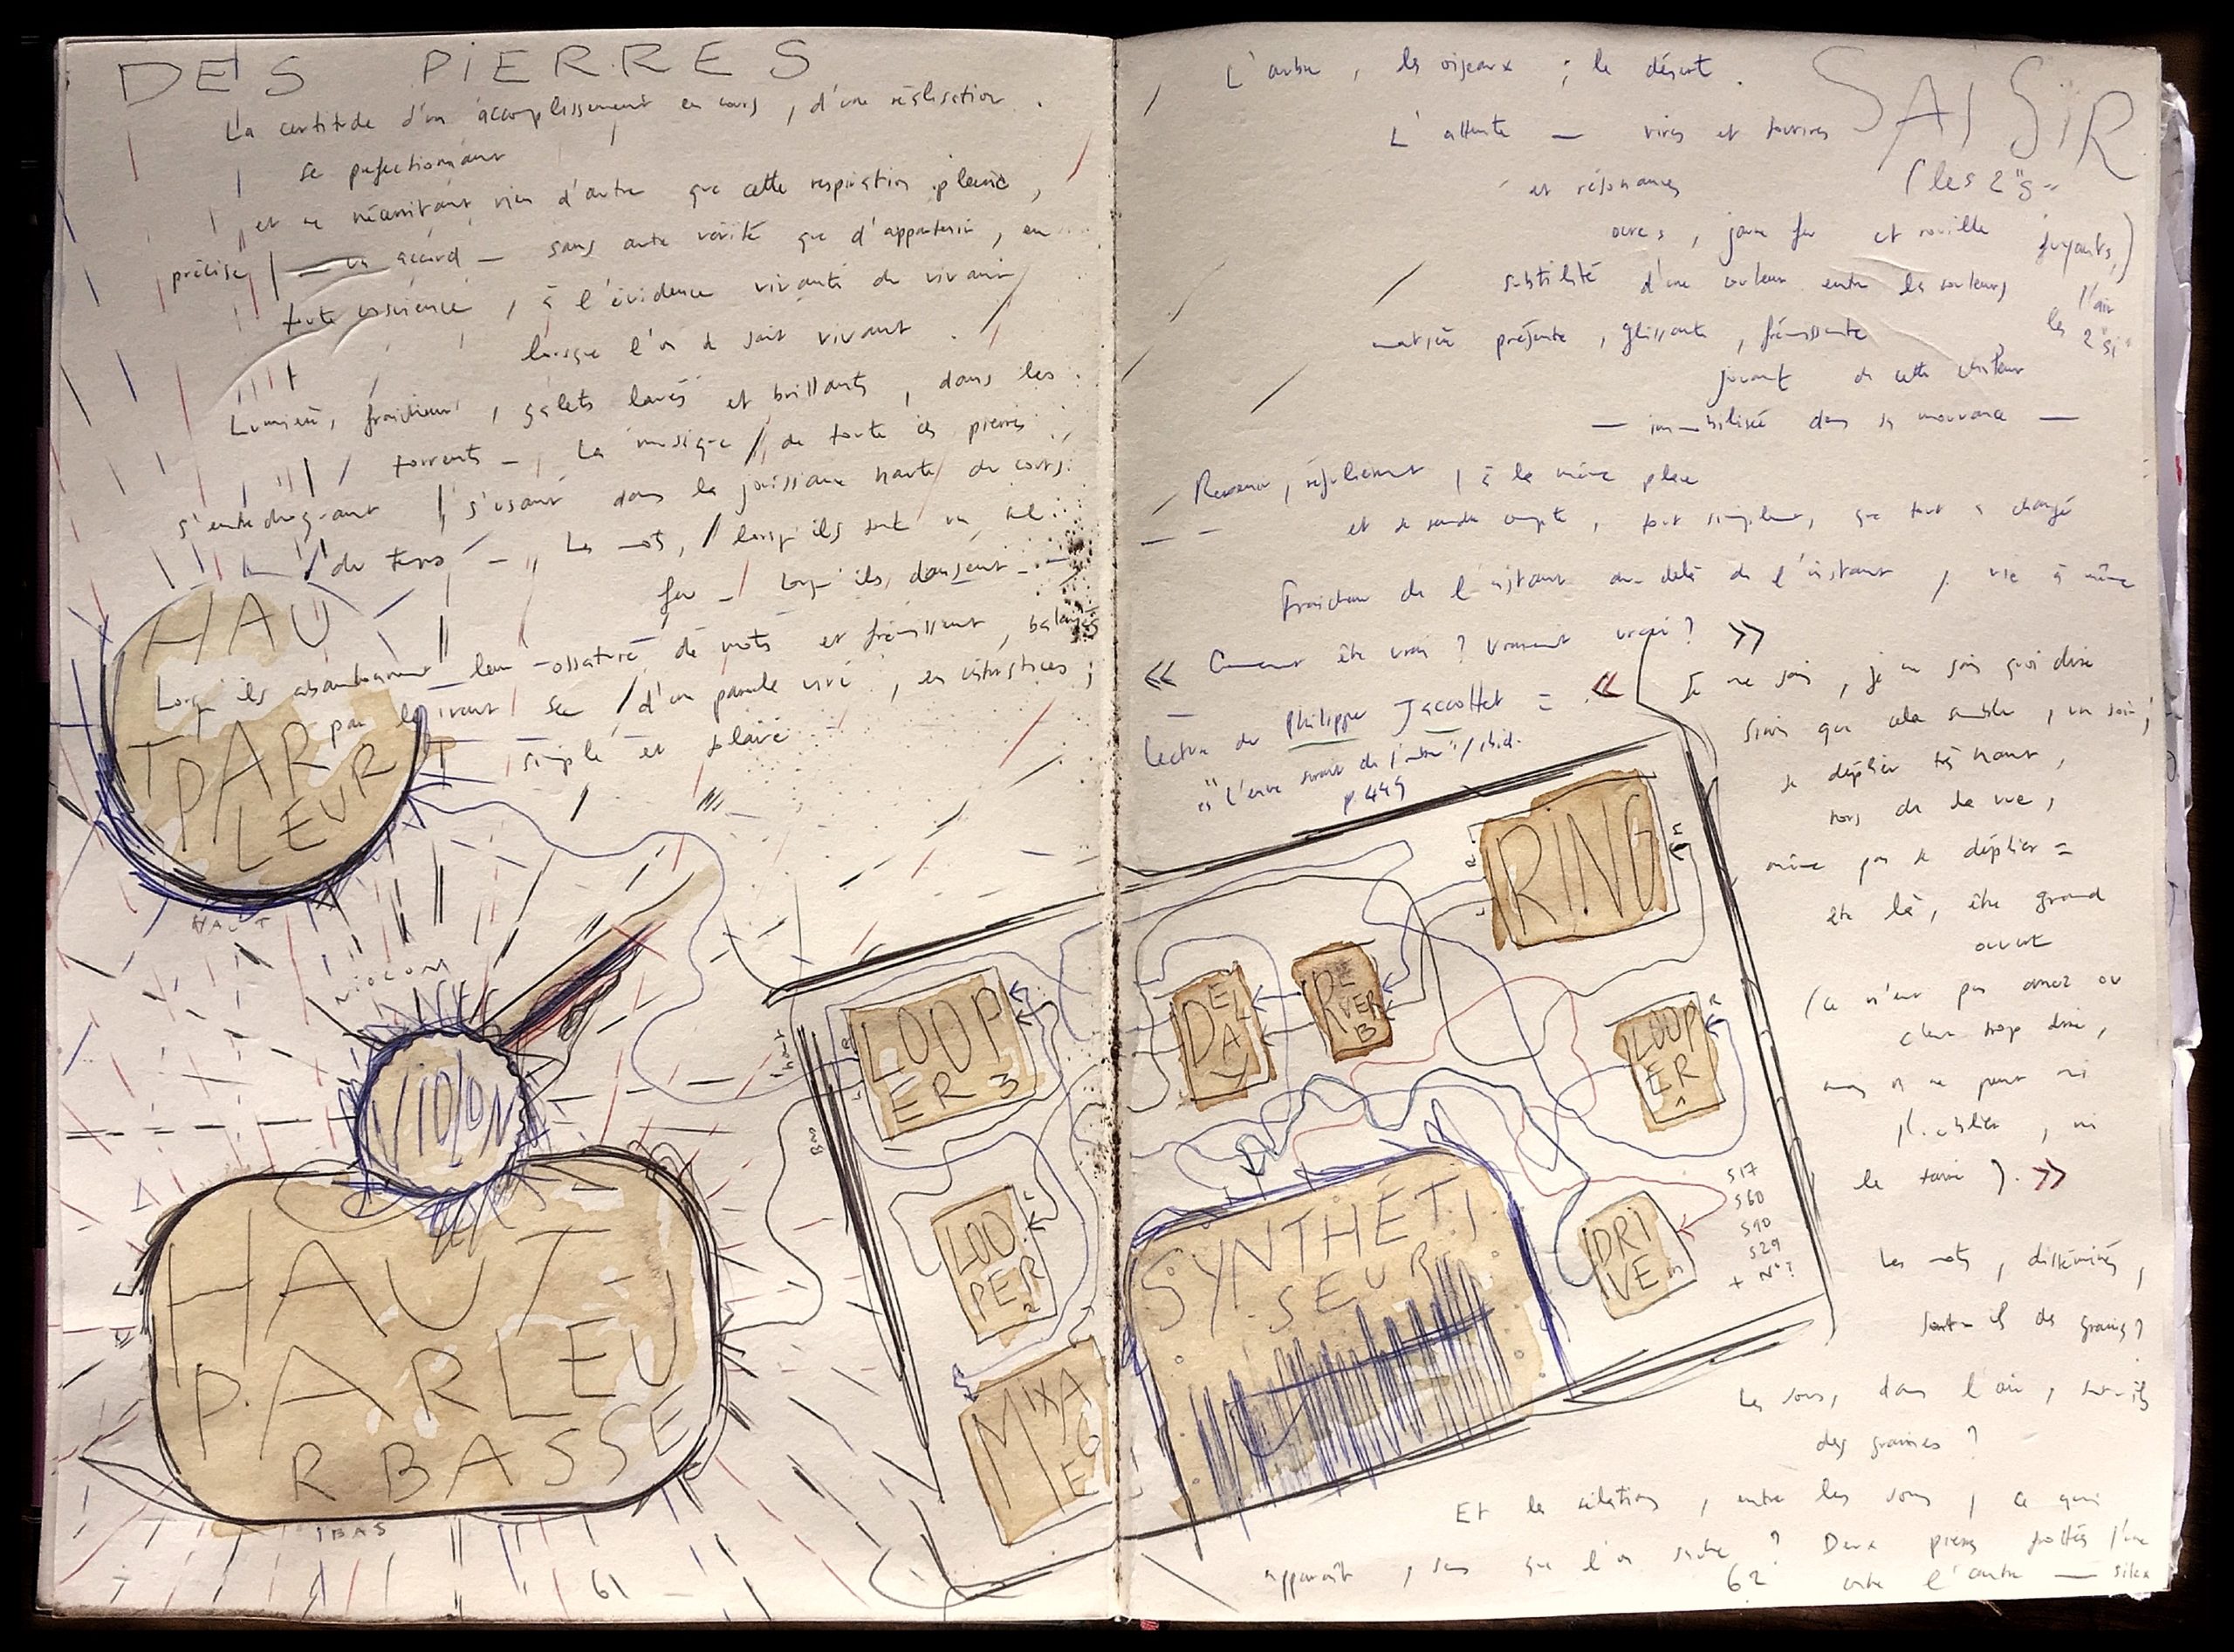 DES PIERRES
La certitude d'un accomplissement en cours, d'une réalisation
se perfectionnant
et ne nécessitant rien d'autre que cette respiration pleine,
précise, — un accord — sans autre vérité que d'appartenir, en
toute conscience, à l'évidence vivante du vivant
lorsque l'on se sait vivant.
Lumière, fraîcheur, galets lavés et brillants, dans les
torrents — La musique de toute ces pierres
s'entrechoquant, s'usant dans la jouissance haute du cours
du temps — Les mots, lorsqu'ils sont un
feu — Lorsqu'ils dansent —
Lorsqu'ils abandonnent leur ossature de mots et frémissent, balayés
par le vent sec d'une parole vive, en interstices,
simple et solaire
HAU
T PAR
LEUR
HAUT
NIOLON
VIOLON
HAUT-
PARLEU
R BASSE
BAS
61
L'arbre, les oiseaux ; le désert.
SAISIR
L'attente — vives et
(les 2 "s"
et résonances
ocres, jaune feu et rouille
fuyants,)
subtilité d'une couleur entre les couleurs
l'air
les 2 "si"
matière présente, glissante, frémissante
jouant de cette
— immobilisée dans sa mouvance —
Revenir, régulièrement, à la même place
et se rendre compte, tout simplement, que tout a changé
Fraîcheur de l'instant au-delà de l'instant, vie à même
« Comment être vrai ? Vraiment vrai ? »
Lecture de Philippe Jaccottet = «
p 449
Je ne sais, je ne sais quoi dire
sinon que cela semble, un soir,
se déplier très haut,
hors de la vue,
même pas se déplier =
être là, être grand
ouvert
(ce n'est pas assez ou
c'est trop dire,
mais on ne peut ni
l'oublier, ni
le taire). »
RING
REVERB
DELAY
LOOPER 3
LOOPER 1
LOOPER 2
MIXAGE
SYNTHÉTI
SEUR
DRIVE
HAUT
BAS
S17
S60
S90
S29
+ N°?
Les mots, disséminés,
sont-ils des grains ?
Les sons, dans l'air, sont-ils
des graines ?
Et les relations, entre les sons, ce qui
apparaît, sans que l'on sache ? Deux pierres frottées l'une
contre l'autre — silex
62